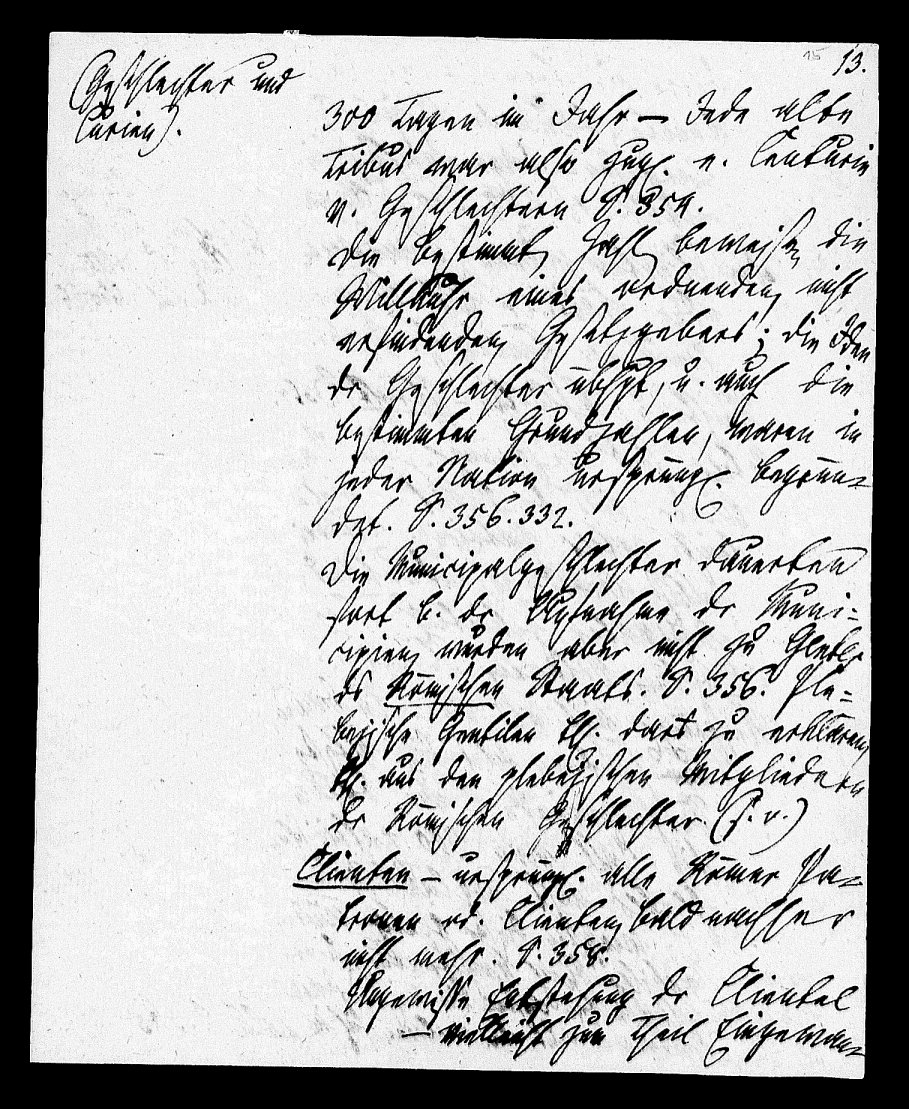 15
13.
(Geschlechter und
Curien).
300 Tagen im Jahr — Jede alte
Tribus war also zugl. e. Centurie
v. Geschlechtern S. 354.
Die bestimmte Zahl beweist die
Willkühr eines ordnenden nicht
erfindenden Gesetzgebers; die Ideen
der Geschlechter übhpt, u. auch die
bestimmten Grundzahlen, waren in
jeder Nation ursprüngl. begrün-
det. S. 356. 332.
Die Municipalgeschlechter dauerten
fort b. der Aufnahme der Muni-
cipien wurden aber nicht zu Gliedern
des Römischen Staats. S. 356. Ple-
bejische Gentilen daraus zu erklären,
aus den plebejischen Mitgliedern
der Römischen Geschlechter. (s. v.)
Clienten — ursprüngl. alle Römer Pa-
tronen od. Clienten, bald nachher
nicht mehr. S. 358.
Ungewisse Entstehung der Clientel
— vielleicht zum Theil Eingewan-